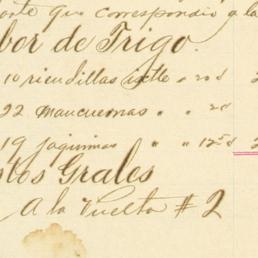 orte que correspondio a la
bor de Trigo.
10 riendillas ixtle " 20 d 2
22 mancuernas " 2 d
19 jaquimas " " 12 5 d 2
stos Grales
A la Vuelta # 2